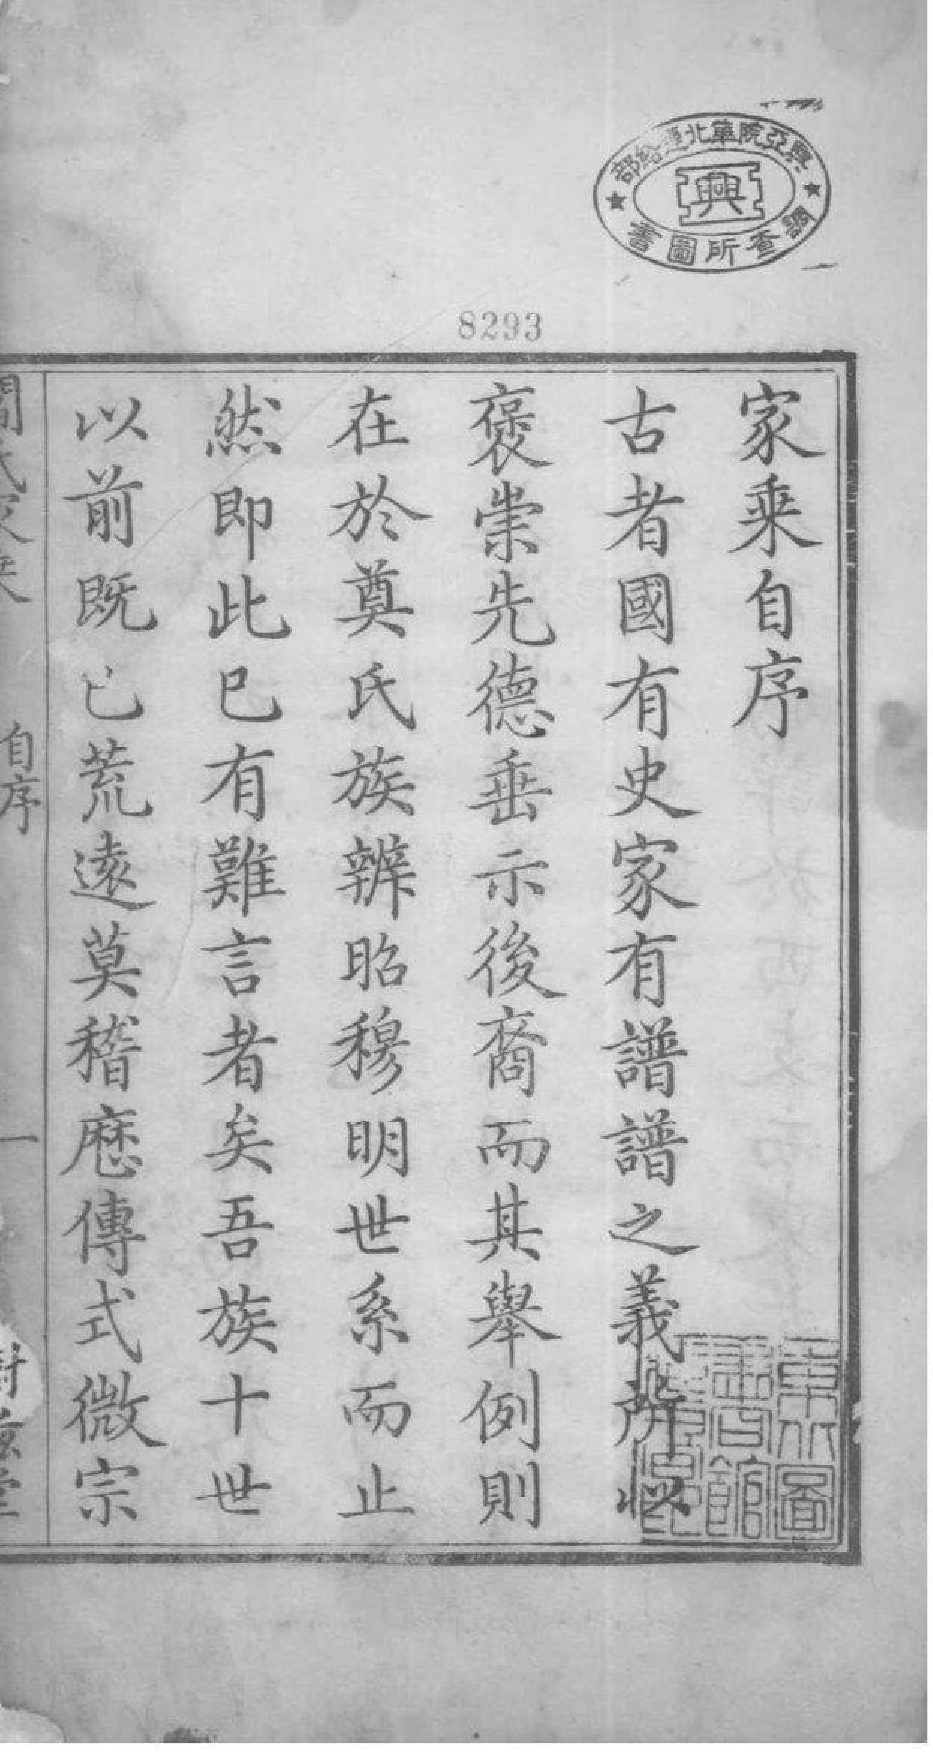 興亞院華北連絡部
興
調查所圖書
8293
家乘自序
古者國有史家有譜譜之義所以
褒崇先德垂示後裔而其舉例則
在於奠氏族辨昭穆明世系而止
然即此已有難言者矣吾族十世
以前既已荒遠莫稽歷傳式微宗
氏家乘
自序
一